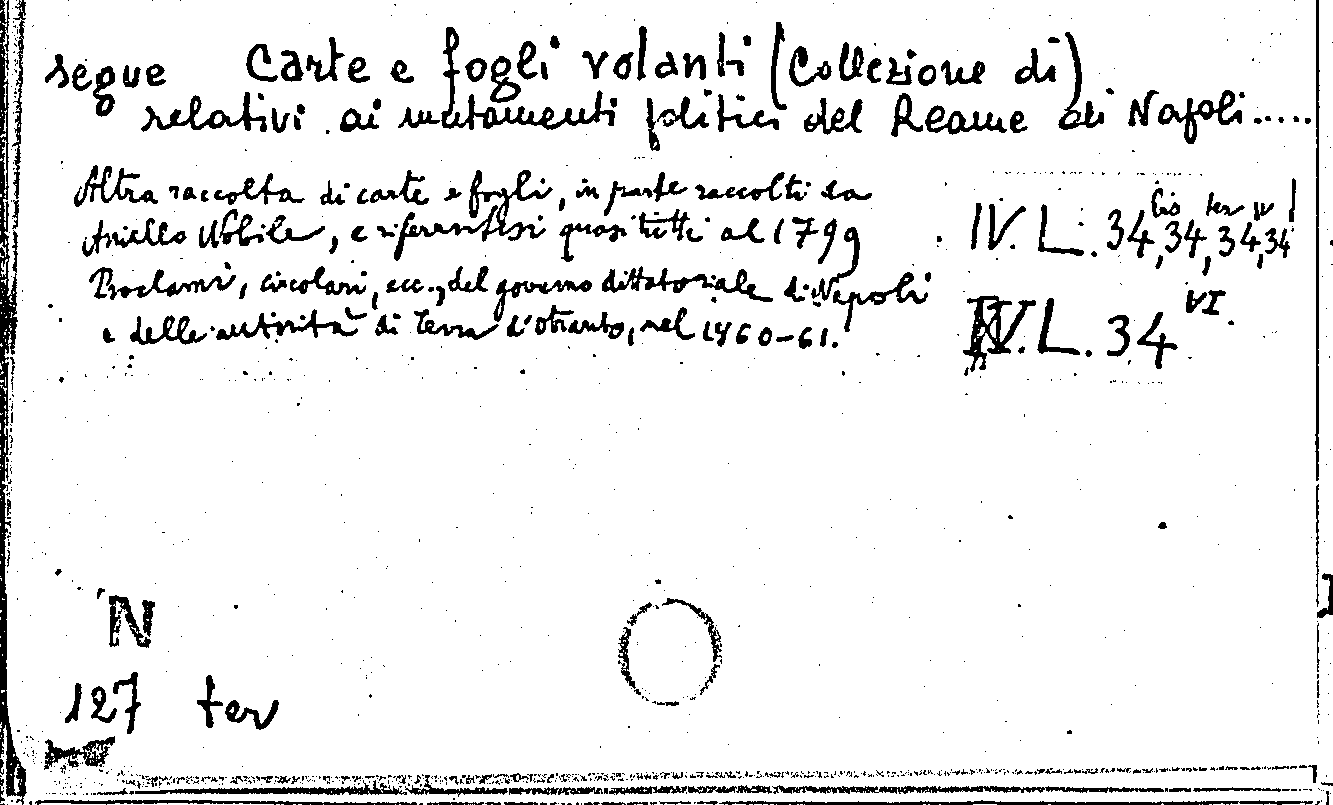 segue Carte e fogli volanti (Collezione di)
relativi ai mutamenti politici del Reame di Napoli.....
Altra raccolta di carte e fogli, in parte raccolti da
Aniello Nobile, e riferentisi quasi tutti al 1799
IV. L. 34, 34 bis, 34 ter, 34 IV
Proclami, circolari, ecc., del governo dittatoriale di Napoli
e delle autorità di Terra d'Otranto, nel 1860-61.
IV. L. 34 VI.
N
127 ter